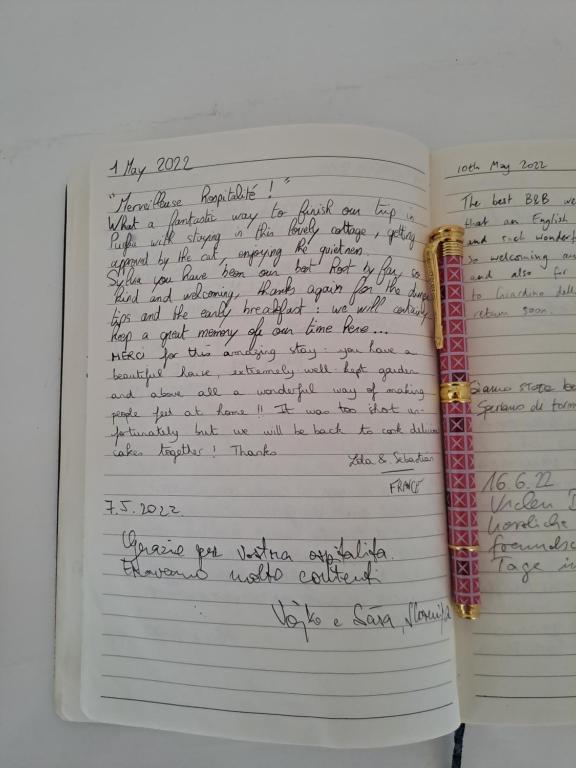 1 May 2022
"Merveilleuse hospitalité !"
What a fantastic way to finish our trip in
Puglia with staying in this lovely cottage, getting
approved by the cat, enjoying the quietness.
Sylvia you have been our best host by far, so
kind and welcoming, thanks again for the
tips and the early breakfast : we will certainly
keep a great memory of our time here...
MERCI for this amazing stay. you have a
beautiful house, extremely well-kept garden
and above all a wonderful way of making
people feel at home !! It was too short un-
fortunately but we will be back to cook delicious
cakes together ! Thanks
Lola & Sebastian
FRANCE
7.5.2022.
Grazie per vostra ospitalita.
molto contenti
Vojko e Sara, Slovenija
10th May 2022
The best B&B we
that an English
and such wonderf
so welcoming an
and also for
to Giardino dell
return soon.
Siamo state be
Speriamo di torna
16.6.22
Vielen D
herzliche
freundsc
Tage in